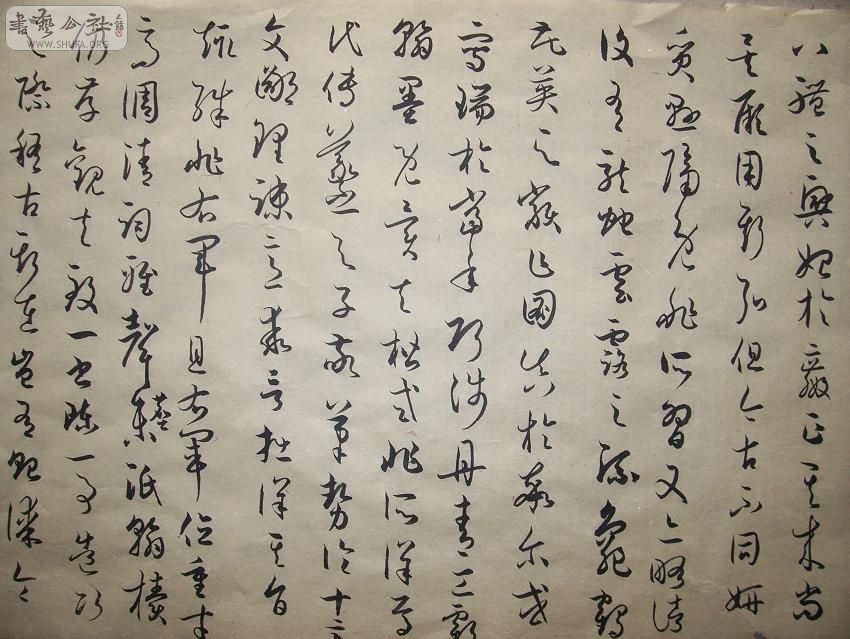 八體之興始於嬴正其來尚
矣厥用斯弘但今古不同妍
質懸隔既非所習又亦略諸
復有龍蛇雲露之流龜鶴
花英之類乍圖真於率爾或
寫瑞於當年巧涉丹青工虧
翰墨既異夫楷式非所詳焉
代傳羲之與子敬筆勢論十章
文鄙理疎意乖言拙詳其旨
趣殊非右軍且右軍位重才
高調清詞雅聲塵未泯翰牘
仍存觀夫致一書陳一事造次
之際稽古斯在豈有貽謀令
書藝公社
WWW.SHUFA.ORG